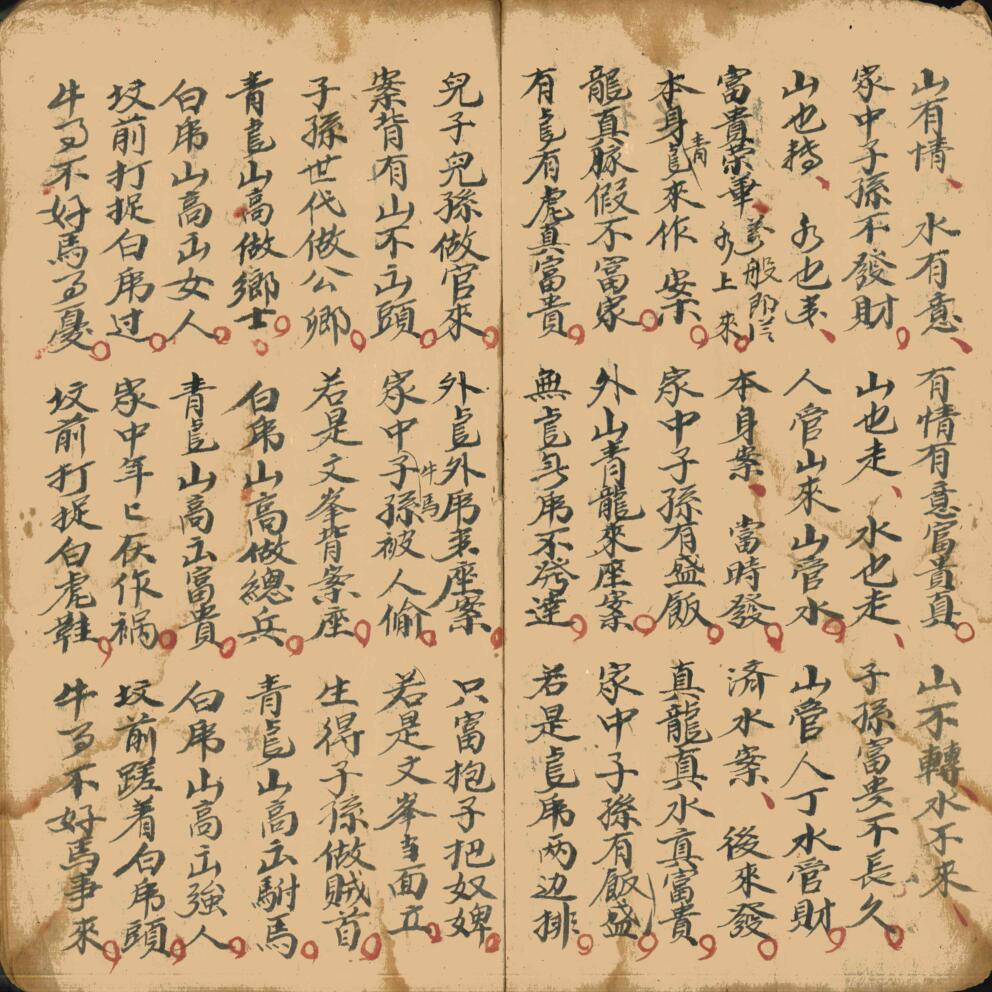 山有情、水有意、有情有意富貴真。山不轉水不來、
家中子孫不發財。山也走、水也走、子孫富貴不長久。
山也水也人管山來山管水。山管人丁水管財。
富貴榮華、萬般即從水上來。本身案、當時發。済水案、後來發。
本身青龍來作案。家中子孫有盛飯。真龍真水真富貴。
龍真脉假不富家。外山青龍來座案。家中子孫有飯盛。
有龍有虎真富貴。無龍无虎不発達。若是龍虎两边排。
兒子兒孫做官來。外龍外虎来座案。只富抱子把奴婢。
案背有山不出頭。家中子孫牛馬被人偷。若是文峯当面立。
子孫世代做公卿。若是文峯背案座。生得子孫做賊首。
青龍山高做鄉士。白虎山高做總兵。青龍山高出駙馬。
白虎山高出女人。青龍山高出富貴。白虎山高出強人。
坟前打捉白虎过。家中年匕仄作禍。坟前蹉着白虎頭。
牛不好馬憂。坟前打捉白虎鞋。牛不好馬事来。